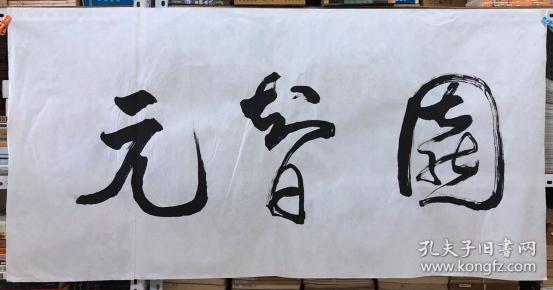 元智園
孔夫子旧书网
www.kongfz.com